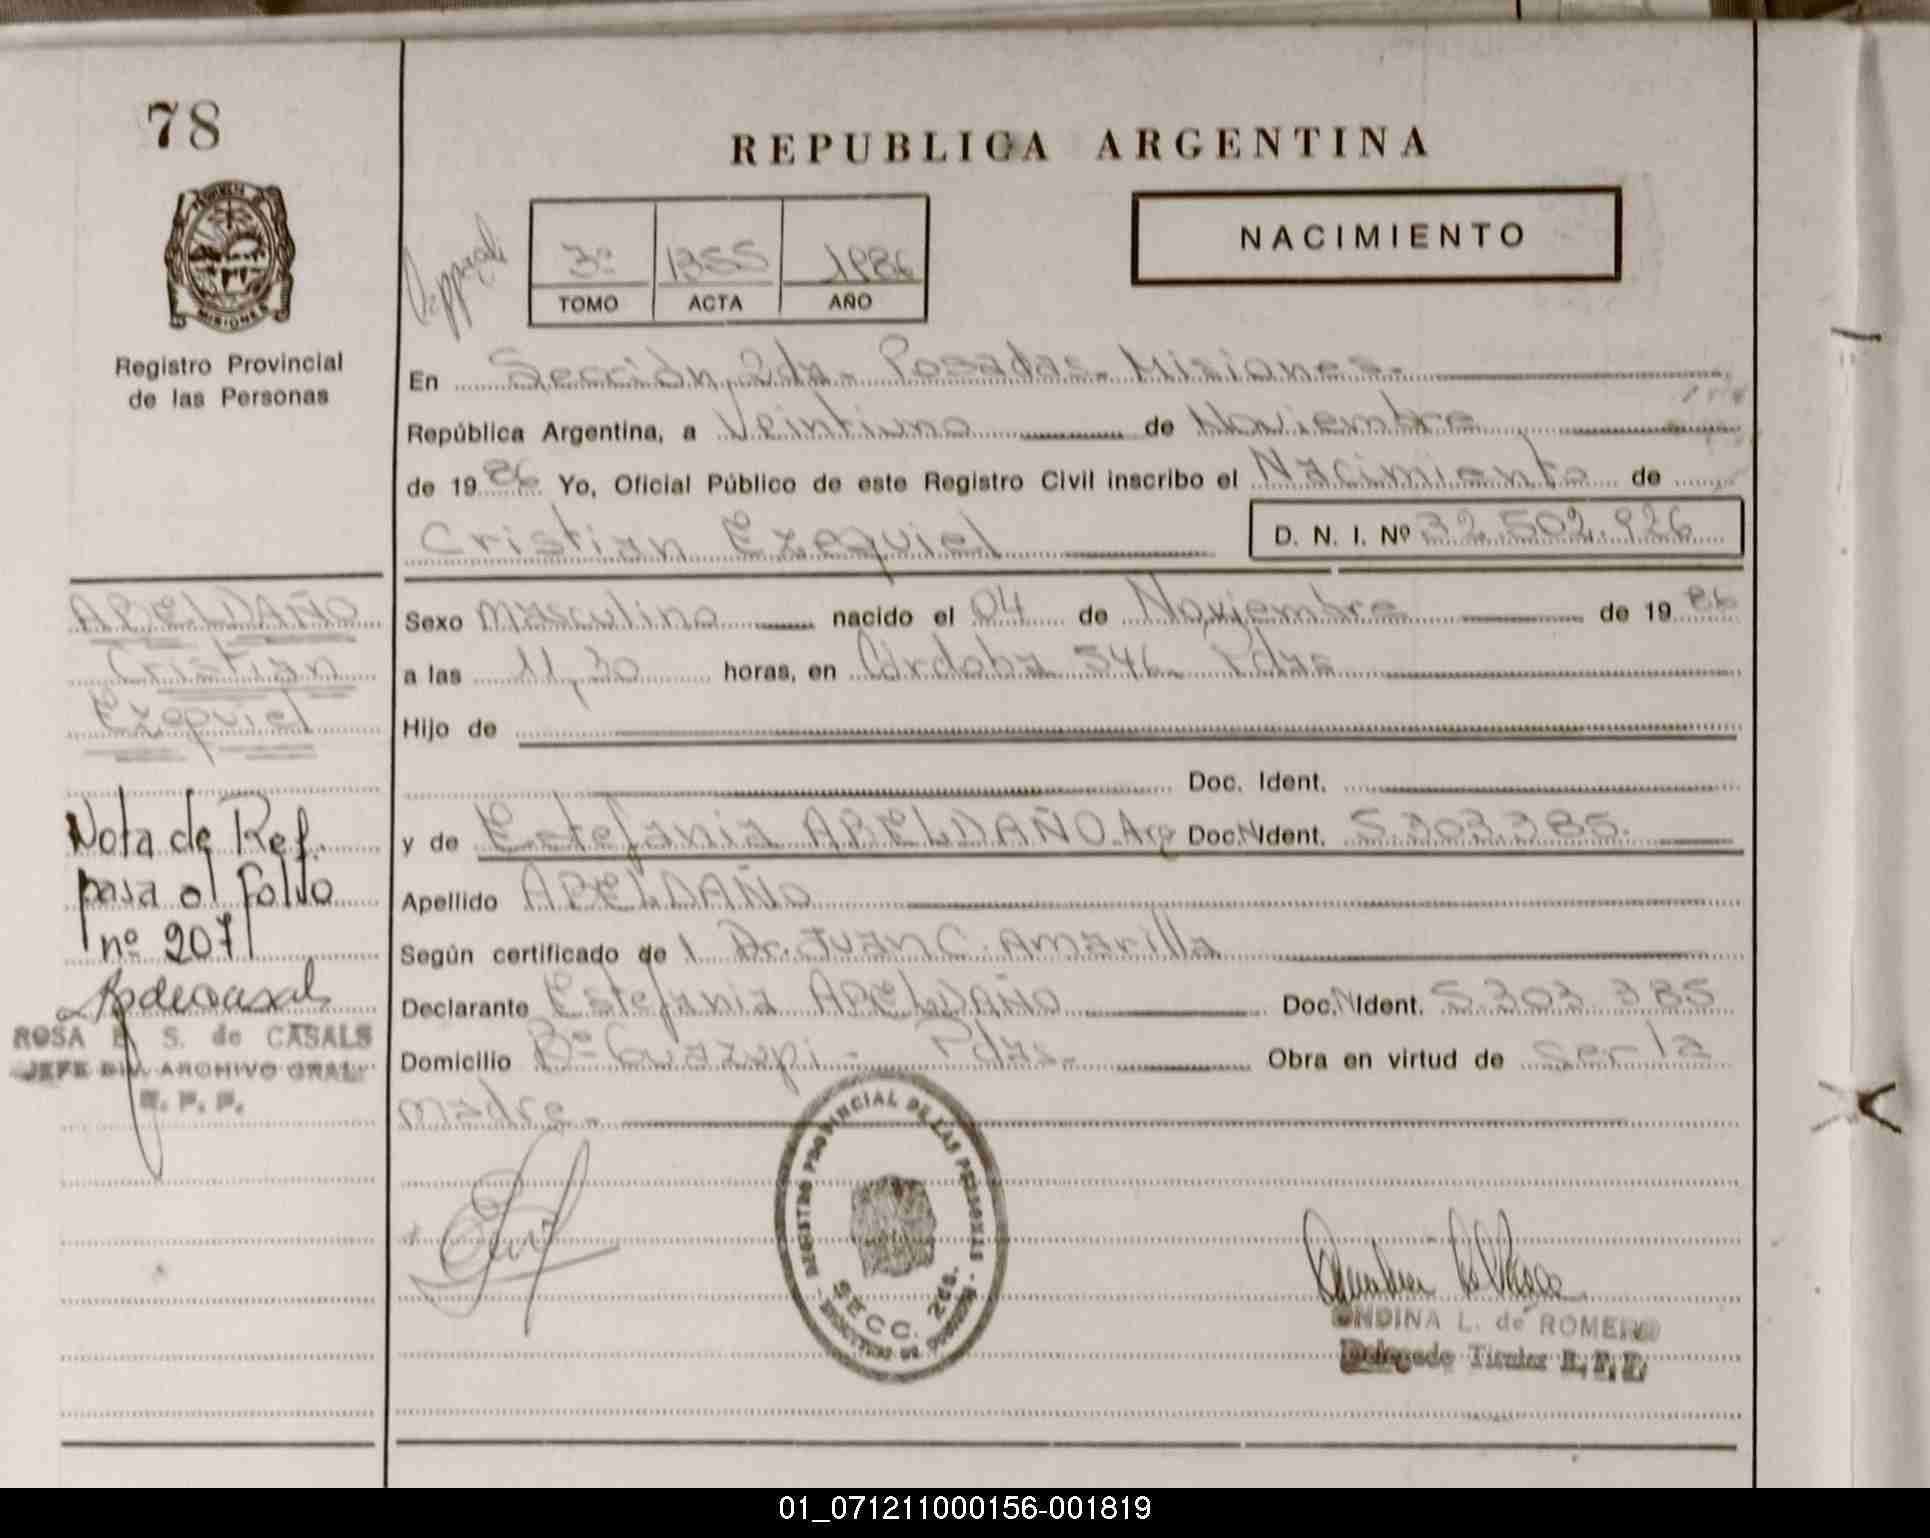 78
REPUBLICA ARGENTINA
NACIMIENTO
3º 1355 1986
TOMO ACTA AÑO
MISIONES
Registro Provincial
de las Personas
En Sección 2da - Posadas - Misiones -
República Argentina, a Veintiuno de Noviembre
de 1986 Yo, Oficial Público de este Registro Civil inscribo el Nacimiento de
Cristian Ezequiel
D. N. I. Nº 32.502.926
APELDAÑO
Cristian
Ezequiel
Sexo Masculino nacido el 04 de Noviembre de 1986
a las 11,30 horas, en Córdoba 546 Pdas
Hijo de
Doc. Ident.
y de Estefania APELDAÑO. Arg Doc. N Ident. 5.303.385.
Apellido APELDAÑO
Según certificado de l Dr. Juan C. Amarilla
Declarante Estefania APELDAÑO Doc. N Ident. 5.303.385
Domicilio Bº Guazupi - Pdas. Obra en virtud de ser la
madre.
Nota de Ref.
pasa al folio
nº 207
ROSA E. S. de CASALS
JEFE DIV. ARCHIVO GRAL.
R. P. P.
REGISTRO PROVINCIAL DE LAS PERSONAS
SECC. 2da.
ONDINA L. de ROMERO
Delegado Titular R. P. P.
01_071211000156-001819